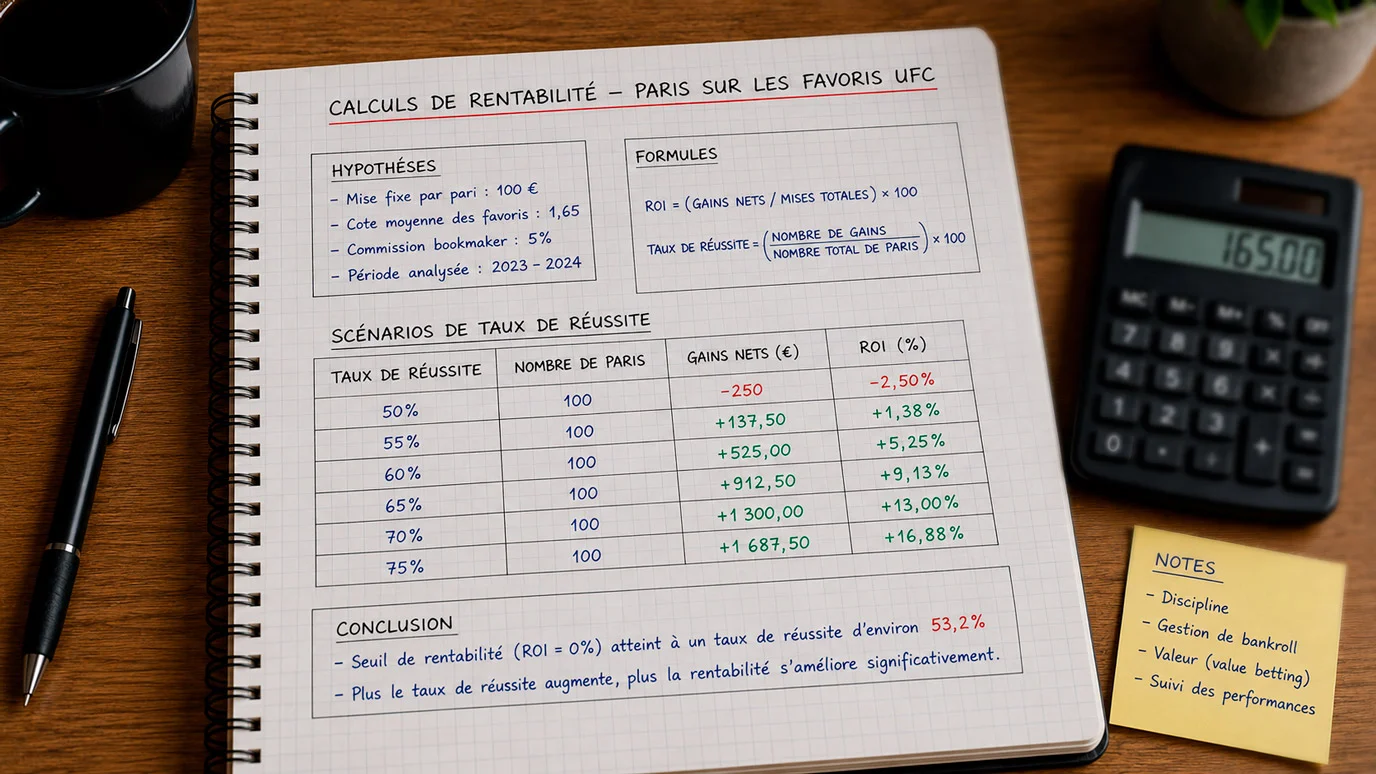 CALCULS DE RENTABILITÉ – PARIS SUR LES FAVORIS UFC
HYPOTHÉSES
– Mise fixe par pari : 100 €
– Cote moyenne des favoris : 1,65
– Commission bookmaker : 5%
– Période analysée : 2023 – 2024
FORMULES
ROI = (GAINS NETS / MISES TOTALES) × 100
TAUX DE RÉUSSITE = (NOMBRE DE GAINS / NOMBRE TOTAL DE PARIS) × 100
SCÉNARIOS DE TAUX DE RÉUSSITE
TAUX DE RÉUSSITE NOMBRE DE PARIS GAINS NETS (€) ROI (%)
50% 100 –250 –2,50%
55% 100 +137,50 +1,38%
60% 100 +525,00 +5,25%
65% 100 +912,50 +9,13%
70% 100 +1 300,00 +13,00%
75% 100 +1 687,50 +16,88%
CONCLUSION
– Seuil de rentabilité (ROI = 0%) atteint à un taux de réussite d'environ 53,2%
– Plus le taux de réussite augmente, plus la rentabilité s'améliore significativement.
165.00
MC M– M+ %
7 8 9 ×
4 5 6 × ÷
1 2 3
0 · ÷ + =
NOTES
– Discipline
– Gestion de bankroll
– Valeur (value betting)
– Suivi des performances